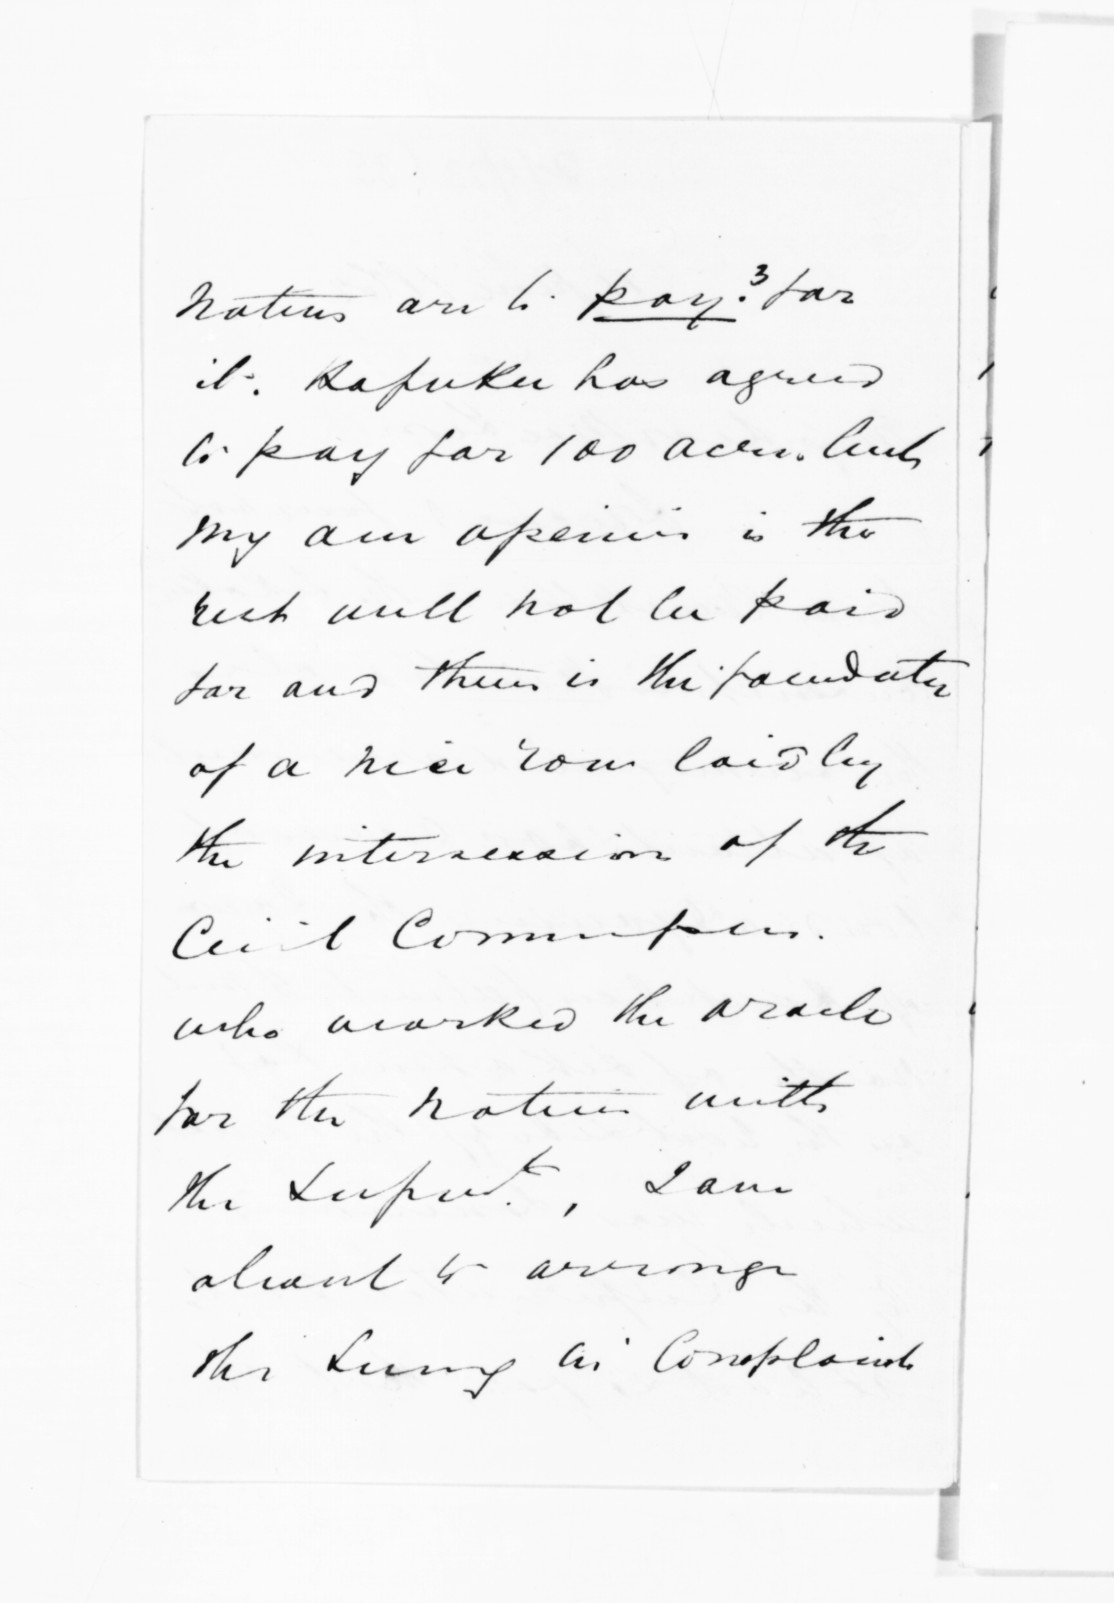 Natives are to pay.³ for
it. Kapukee has agreed
to pay for 100 acres. but
my own opinion is the
rest will not be paid
for and there is the foundation
of a nice row laid by
the intercession of the
Civil Commissr.
who worked the oracle
for the Natives with
the Supndt., I am
about to arrange
the in Complaints